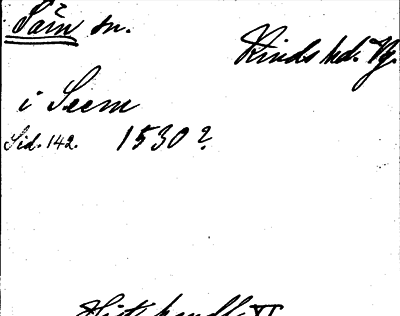 Säm sn.
Kinds hd. Vg.
i Seem
Sid. 142. 1530?
Hist. handl. VI